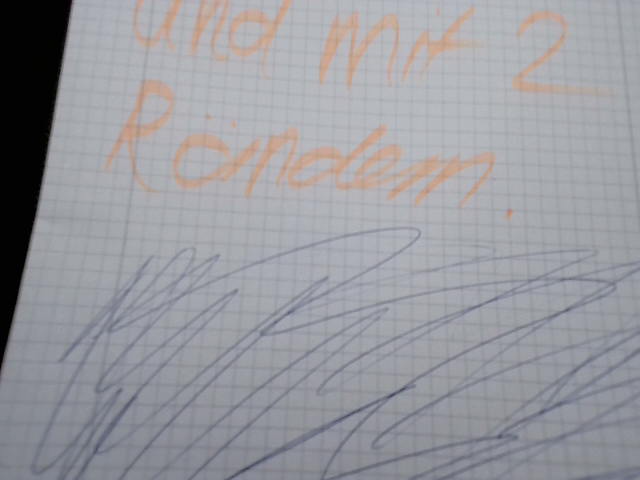 und mit 2
Rändern.